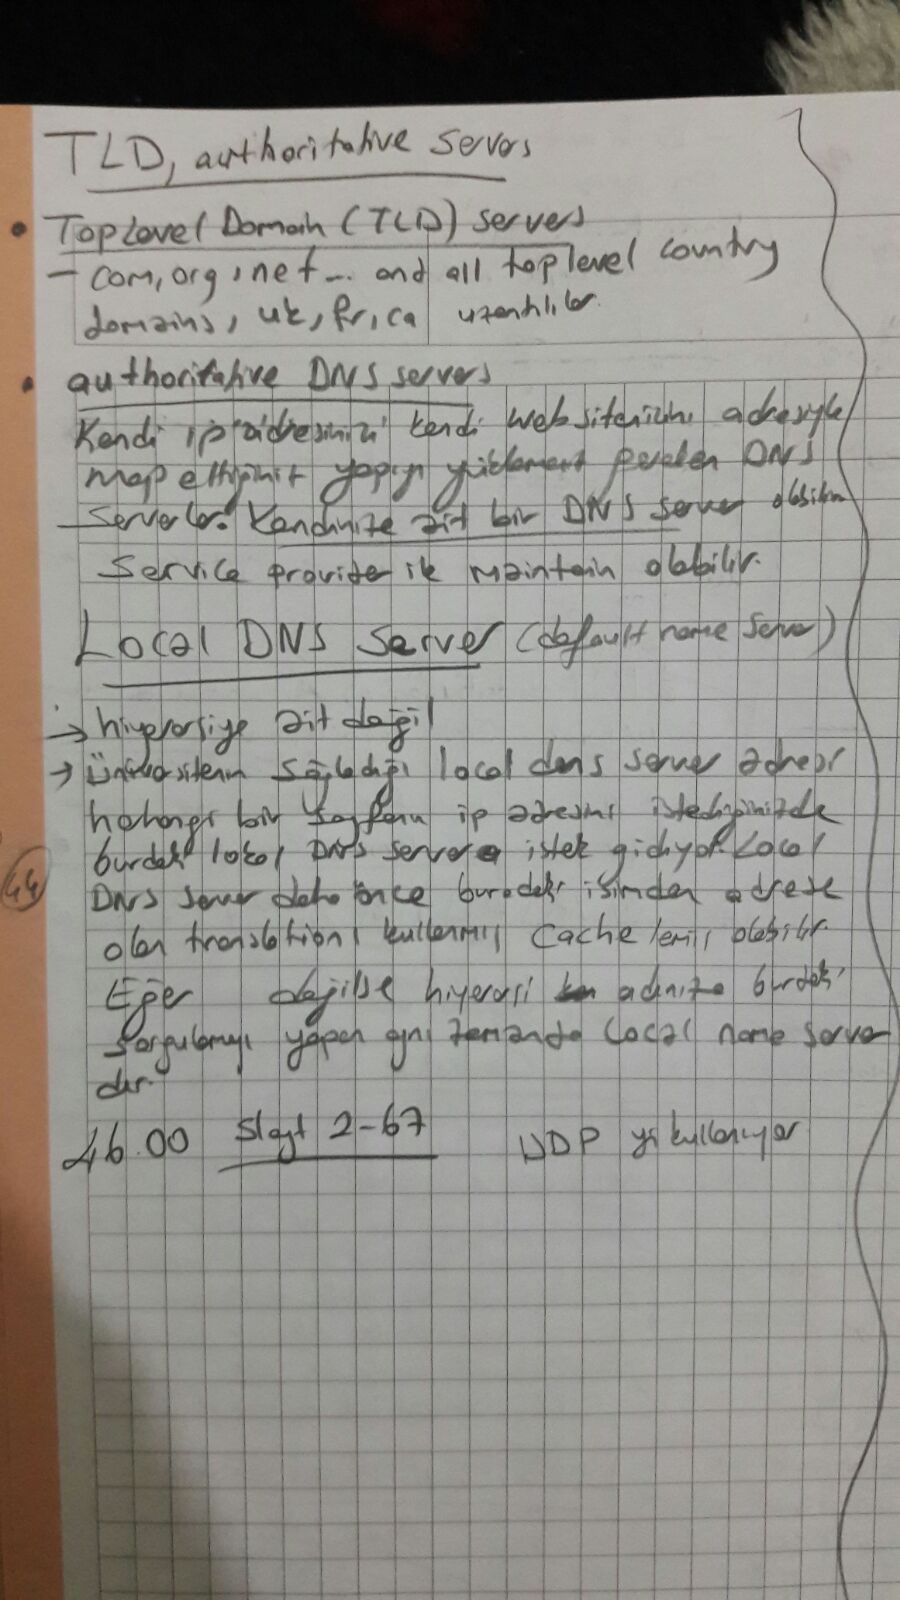 TLD, authoritative servers
• Top Level Domain (TLD) servers
- com, org, net... and all top level country
domains, uk, fr, ca uzantılılar.
• authoritative DNS servers
Kendi ip adresinizi kendi web sitenizin adresiyle
map ettiğiniz yapıyı DNS
serverlar. Kendinize ait bir DNS server olabilir
service provider ile maintain olabilir.
Local DNS Server (default name server)
→ hiyerarşiye ait değil
→ Üniversitenin sağladığı local dns server adresi
hehangi bir sayfanın ip adresini istediğinizde
burdaki lokal DNS servera istek gidiyor. Local
44
DNS server daha önce buradaki isimden adrese
olan translationı kullanmış cache lemiş olabilir.
Eğer değilse hiyerarşi adınıza burdaki
sorgulamayı yapan aynı zamanda local name server
dır.
46.00 Slayt 2-67 UDP yi kullanıyor